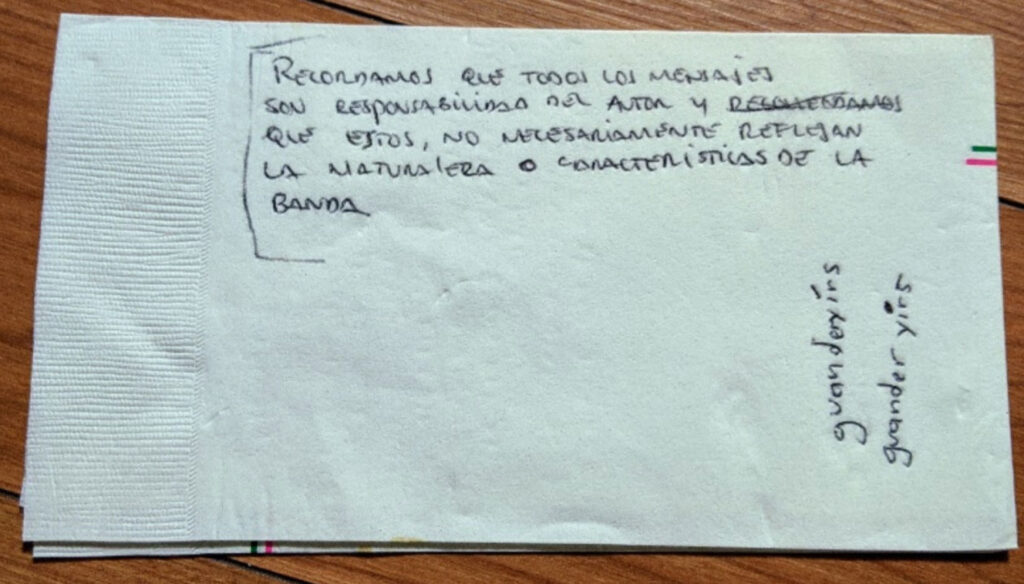 RECORDAMOS QUE TODOS LOS MENSAJES
SON RESPONSABILIDAD DEL AUTOR Y RECOMENDAMOS
QUE ESTOS, NO NECESARIAMENTE REFLEJAN
LA NATURALEZA O CARACTERÍSTICAS DE LA
BANDA
guanderyirs
guander yirs